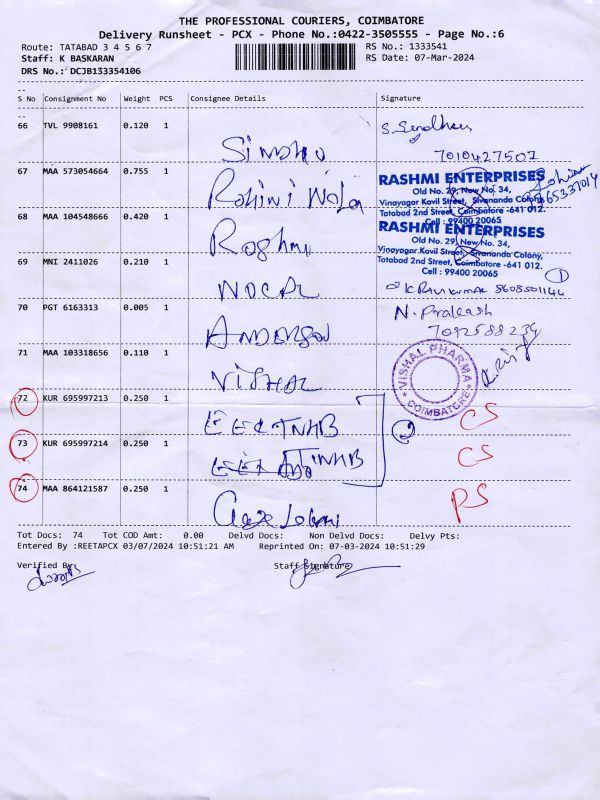 THE PROFESSIONAL COURIERS, COIMBATORE
Delivery Runsheet - PCX - Phone No.:0422-3505555 - Page No.:6
Route: TATABAD 3 4 5 6 7
RS No.: 1333541
Staff: K BASKARAN
RS Date: 07-Mar-2024
DRS No.: DCJB133354106
S No Consignment No Weight PCS Consignee Details Signature
66 TVL 9908161 0.120 1
Sindhu
7010427507
67 MAA 573054664 0.755 1
Rohini
RASHMI ENTERPRISES
Old No. 29, New No. 34,
Vinayagar Kovil Street, Sivananda Colony,
Tatabad 2nd Street, Coimbatore -641 012.
Cell : 99400 20065
68 MAA 104548666 0.420 1
Rashmi
RASHMI ENTERPRISES
Old No. 29, New No. 34,
Vinayagar Kovil Street, Sivananda Colony,
Tatabad 2nd Street, Coimbatore -641 012.
Cell : 99400 20065
69 MNI 2411026 0.210 1
1
70 PGT 6163313 0.005 1
Anderson
N. Prakash
7092588239
71 MAA 103318656 0.110 1
Vishal
VISHAL PHARMA
COIMBATORE
72 KUR 695997213 0.250 1
CS
73 KUR 695997214 0.250 1
CS
74 MAA 864121587 0.250 1
PS
Tot Docs: 74 Tot COD Amt: 0.00 Delv Docs: Non Delv Docs: Delvy Pts:
Entered By :REETAPCX 03/07/2024 10:51:21 AM Reprinted On: 07-03-2024 10:51:29
Verified By:
Staff Signature